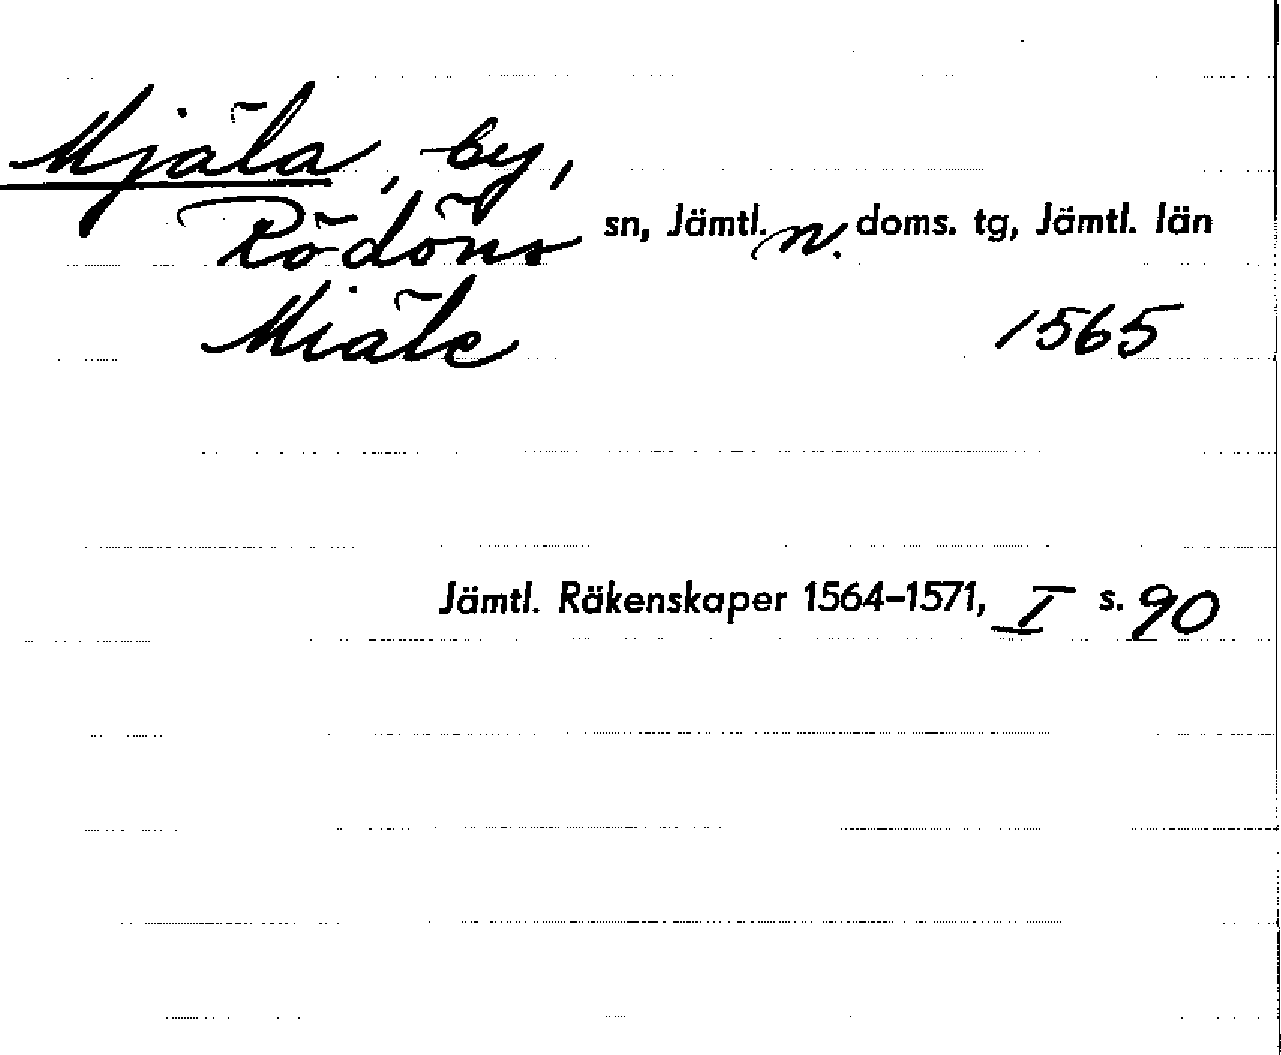 Mjäla, by,
Rödöns sn, Jämtl. n. doms. tg, Jämtl. län
Miäle 1565
Jämtl. Räkenskaper 1564-1571, I s. 90